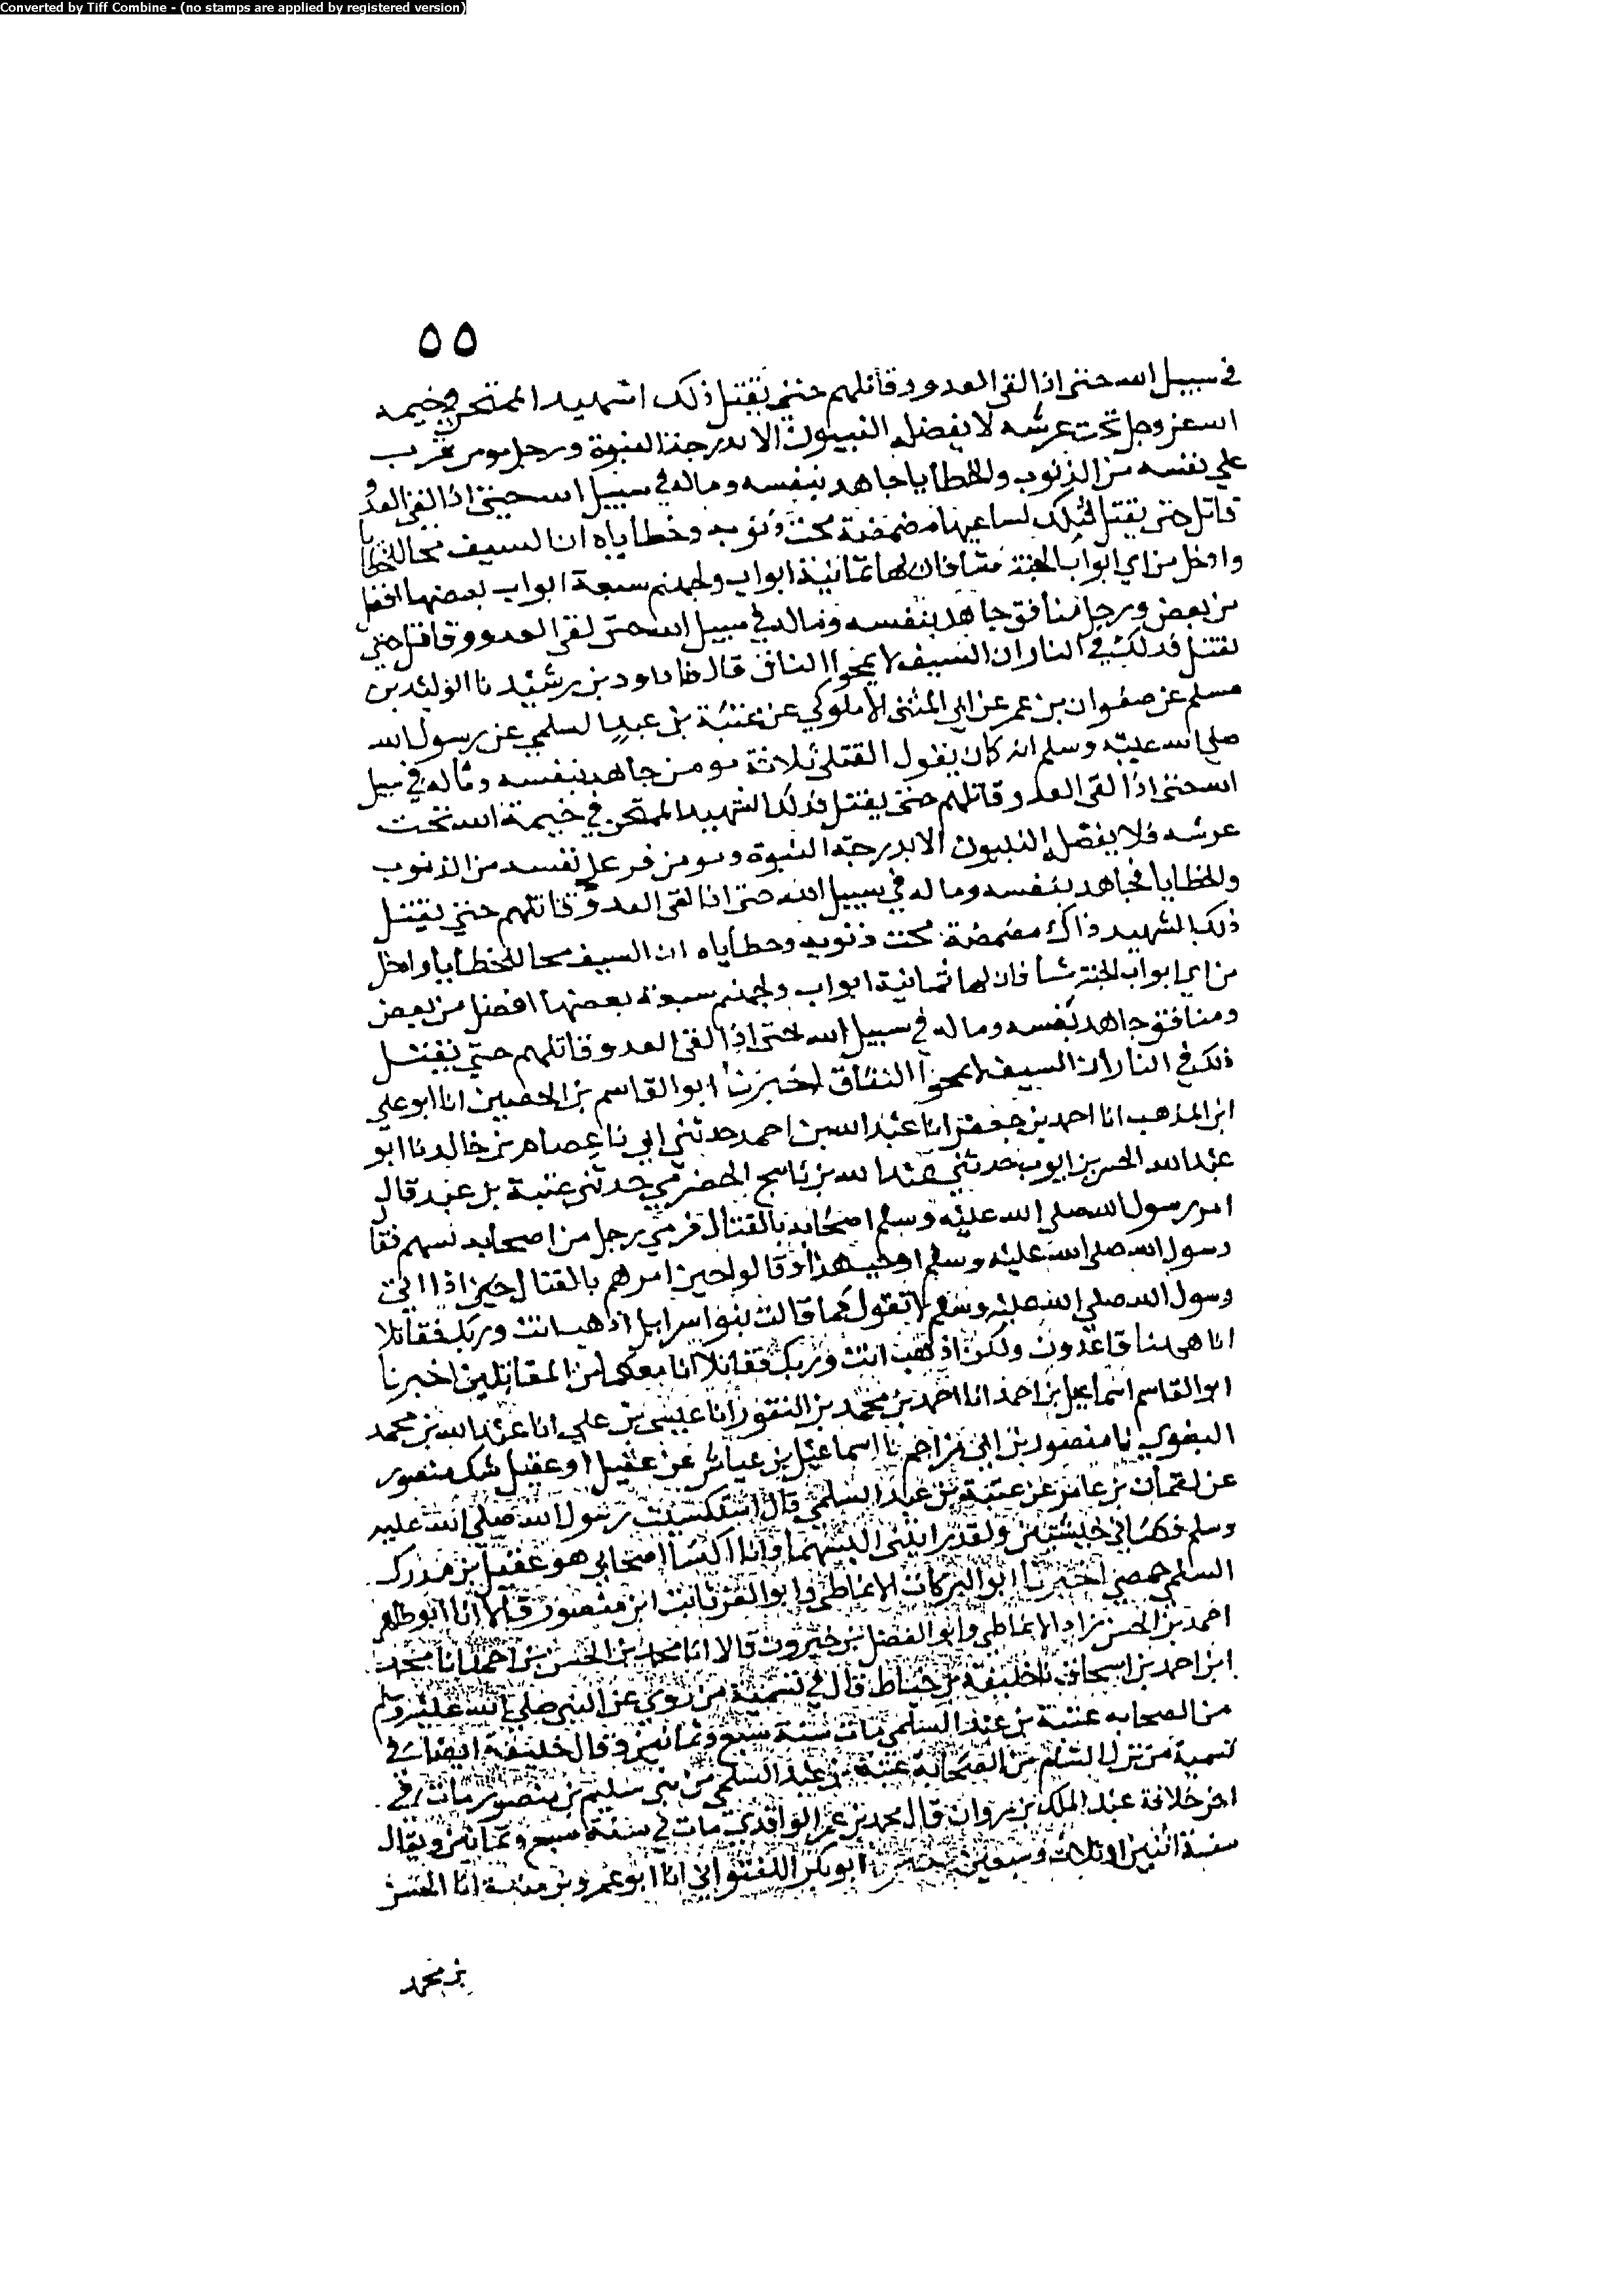 Converted by Tiff Combine - (no stamps are applied by registered version)
٥٥
في سبيل الله حتى اذا لقي العدو وقاتلهم حتى يقتل ذلك الشهيد الممتحن في خيمه
الله عز وجل تحت عرشه لا يفضله النبيون الا بدرجة النبوة ورجل مومن
على نفسه من الذنوب والخطايا جاهد بنفسه وماله في سبيل الله حتى اذا لقي العدو
قاتل حتى يقتل مضمضة محت ذنوبه وخطاياه ان السيف محا للخطايا
وادخل من اي ابواب الجنة شا فان لها ثمانية ابواب ولجهنم سبعة ابواب بعضها افضل
من بعض ورجل منافق جاهد بنفسه وماله في سبيل الله حتى لقي العدو وقاتل حتى
يقتل فذلك في النار ان السيف لا يمحوا النفاق قال نا داود بن رشيد نا الوليد بن
مسلم عن صفوان بن عمر عن ابي المثنى الاملوكي عن عتبة بن عبد السلمي عن رسول الله
صلى الله عليه وسلم انه كان يقول القتلى ثلاثة مومن جاهد بنفسه وماله في سبيل
الله حتى اذا لقي العدو قاتلهم حتى يقتل فذلك الشهيد الممتحن في خيمة الله تحت
عرشه فلا يفضله النبيون الا بدرجة النبوة ومومن على نفسه من الذنوب
والخطايا فجاهد بنفسه وماله في سبيل الله حتى اذا لقي العدو قاتلهم حتى يقتل
ذلك الشهيد ذاك مضمضة محت ذنوبه وخطاياه ان السيف محا للخطايا وادخل
من اي ابواب الجنة شا فان لها ثمانية ابواب ولجهنم سبعة بعضها افضل من بعض
ومنافق جاهد بنفسه وماله في سبيل الله حتى اذا لقي العدو قاتلهم حتى يقتل
ذلك في النار ان السيف لا يمحوا النفاق اخبرنا ابو القاسم بن الحصين انا ابو علي
ابن المذهب انا احمد بن جعفر انا عبد الله بن احمد حدثني ابي نا عصام بن خالد نا ابو
عبد الله الحسن بن ايوب حدثني عبد الله بن ناسج الحضرمي حدثني عتبة بن عبد قال
امر رسول الله صلى الله عليه وسلم اصحابه بالقتال فرمي رجل من اصحابه بسهم فقال
رسول الله صلى الله عليه وسلم اوجب هذا وقالوا حين امرهم بالقتال
رسول الله صلى الله عليه وسلم لا نقول كما قالت بنوا اسرايل اذهب انت وربك فقاتلا
انا هاهنا قاعدون ولكن اذهب انت وربك فقاتلا انا معكما من المقاتلين اخبرنا
ابو القاسم اسماعيل بن احمد انا احمد بن محمد بن النقور انا عيسى بن علي انا عبد الله بن محمد
البغوي نا منصور بن ابي مزاحم نا اسماعيل بن عياش عن عقيل او عقيل شك منصور
عن لقمان بن عامر عن عتبة بن عبد السلمي قال استكسيت رسول الله صلى الله عليه
وسلم فكساني خيشتين ولقد رايتني البسهما وانا اكسا اصحابي هو عقيل بن مدرك
السلمي حمصي اخبرنا ابو البركات الانماطي وابو العز ثابت ابن منصور قالا انا ابو طاهر
احمد بن الحسن زاد الانماطي وابو الفضل بن خيرون قالا انا محمد بن الحسن بن احمد انا محمد
ابن احمد بن اسحاق نا خليفة بن خياط قال في تسمية من روى عن النبي صلى الله عليه وسلم
من الصحابه عتبة بن عبد السلمي مات سنة سبع وثمانين وقال خليفة ايضا في
تسمية من نزل الشام من الصحابة عتبة بن عبد السلمي من بني سليم بن منصور مات في
اخر خلافة عبد الملك بن مروان قال محمد بن عمر الواقدي مات في سنة سبع وثمانين ويقال
سنة اثنين او ثلاث وسبعين ابو بكر اللفتواني انا ابو عمرو بن منده انا الحسن
بن محمد